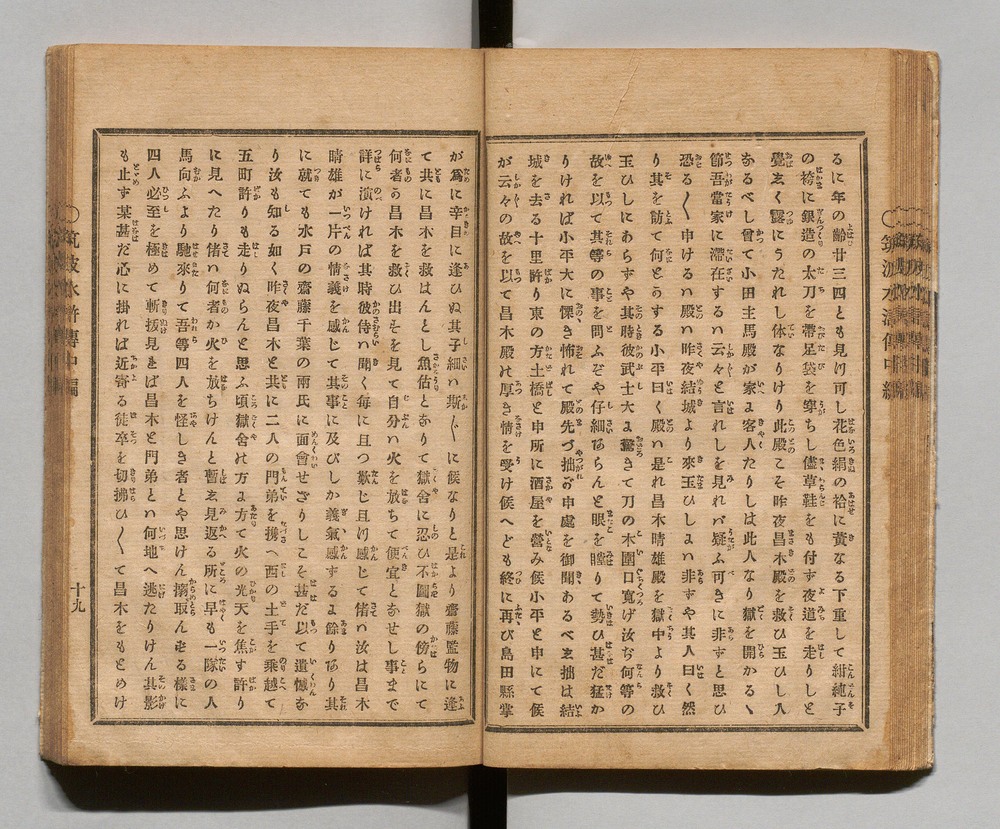 るに年の齢廿三四とも見け可し花色絹の袷に黄なる下重して紺純子
の袴に銀造の太刀を帶足袋を穿ちし儘草鞋をも付ず夜道を走りしと
覺ゑく露にうたれし体なりけり此殿こそ昨夜昌木殿を救ひ玉ひし人
あるべし曾て小田主馬殿が家ゑ客人たりしは此人なり獄を開かるゝ
節吾當家に滯在するハ云々と言れしを見れバ疑ふ可きに非ずと思ひ
恐る〱申けるハ殿ハ昨夜結城より來玉ひしよハ非ずや其人曰く然
り其を訪て何とうする小平曰く殿ハ是れ昌木晴雄殿を獄中より救ひ
玉ひしにあらずや其時彼武士大ゑ驚きて刀の木圍口寛げ汝ぢ何等の
故を以て其等の事を問ふぞや仔細あらんと眼を瞠りて勢ひ甚だ猛か
りければ小平大に慄き怖れて殿先づ拙が申處を御聞あるべゑ拙は結
城を去る十里許り東の方土橋と申所に酒屋を營み候小平と申にて候
が云々の故を以て昌木殿は厚き情を受け候へども終に再び島田縣掌
が爲に辛目に逢ひぬ其子細ハ斯〱に候なりと是より齋藤監物に逢
て共に昌木を救はんとし魚估とありて獄舍に忍ひ不圖獄の傍らにて
何者う昌木を救ひ出そを見て自分ハ火を放ちて便宜とあせし事まで
詳に演ければ其時彼侍ハ聞く毎に且つ歎じ且け感じて偖ハ汝は昌木
晴雄が一片の情義を感じて其事に及びしか義氣感するよ餘りあり其
に就ても水戸の齋藤千葉の兩氏に面會せざりしこそ甚だ以て遺憾あ
り汝も知る如く昨夜昌木と共に二人の門弟を携へ西の土手を乘越て
五町許りも走りぬらんと思ふ頃獄舍の方ゑ方て火の光天を焦す許り
に見へたり偖ハ何者か火を放ちけんと暫ゑ見返る所に早も一隊の人
馬向ふより馳來りて吾等四人を怪しき者とや思けん搦取んとる樣に
四人必至を極めて斬拔見きば昌木と門弟とハ何地へ逃たりけん其影
も止ず某甚だ心に掛れば近寄る徒卒を切拂ひ〱て昌木をもとめけ
十九